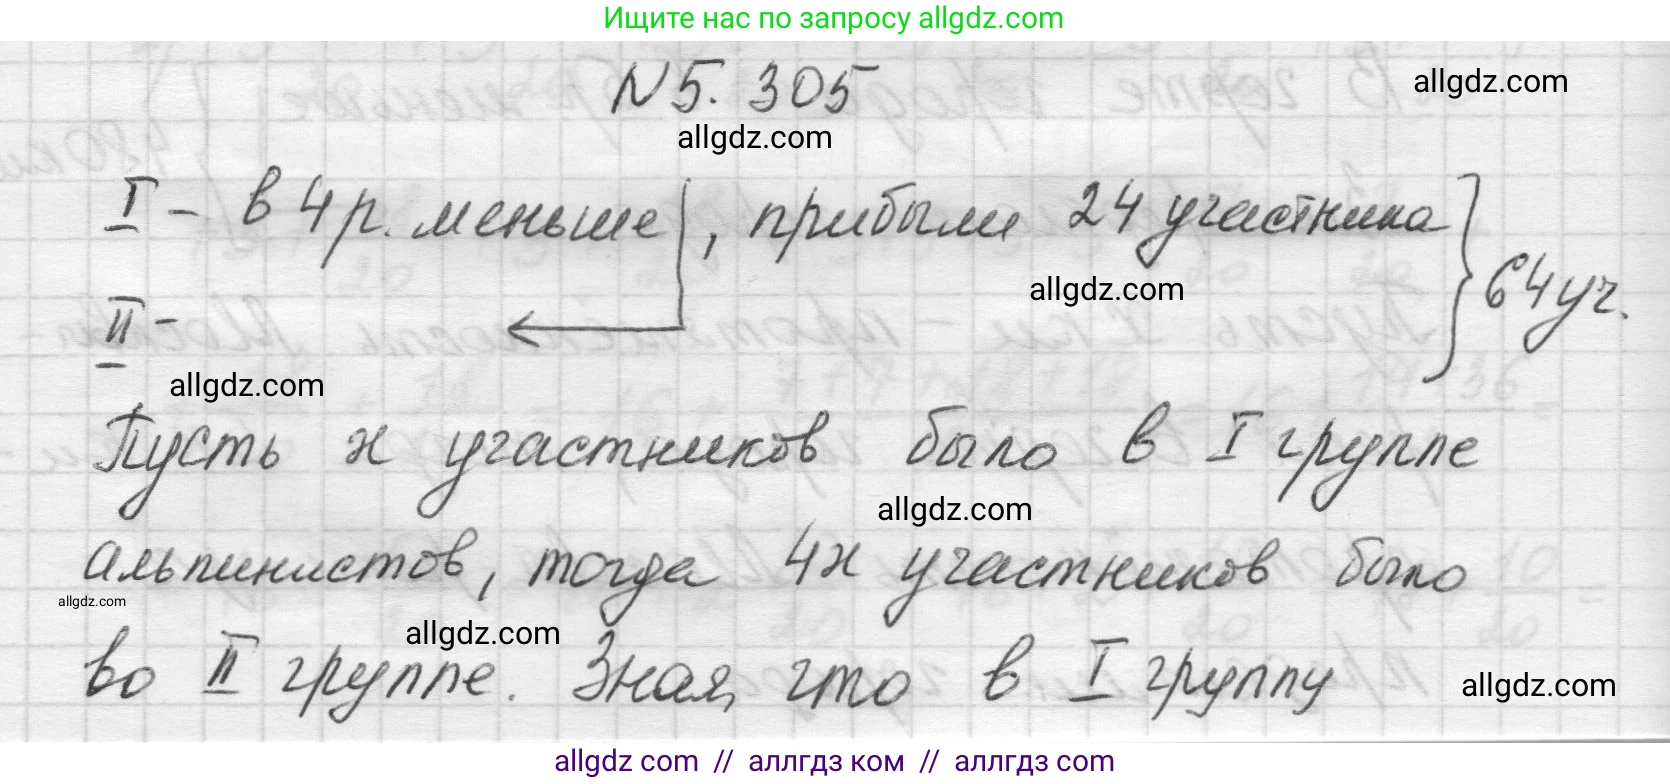 Ищите нас по запросу allgdz.com
N5.305
allgdz.com
allgdz.com
I - в 4 р. меньше, прибыли 24 участника
64 уч.
allgdz.com
II -
allgdz.com
Пусть х участников было в I группе
allgdz.com
альпинистов, тогда 4х участников было
allgdz.com
allgdz.com
во II группе. Зная, что в I группу
allgdz.com
allgdz com // аллгдз ком // аллгдз com